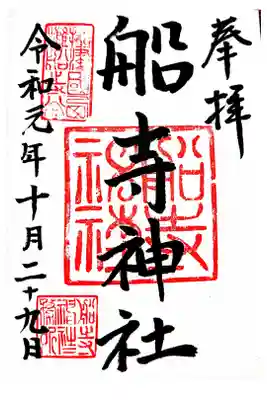 奉拝
船寺神社
令和元年十月二十九日
船寺神社